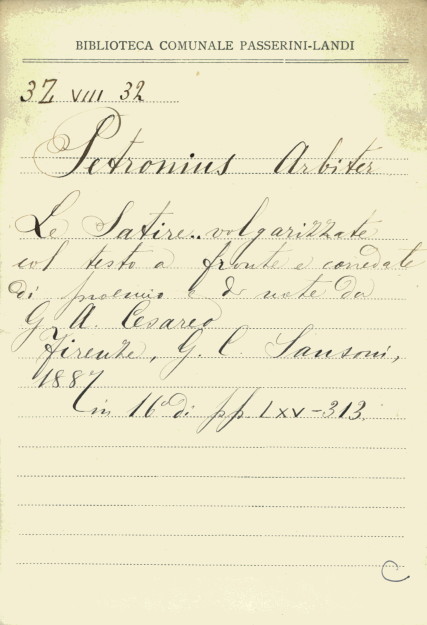 BIBLIOTECA COMUNALE PASSERINI-LANDI
3Z VIII 32
Petronius Arbiter
Le Satire.. volgarizzate
col testo a fronte e corredate
di proemio e di note da
G. A. Cesareo
Firenze, G. C. Sansoni,
1887
in 16° di pp. LXV-313.
C